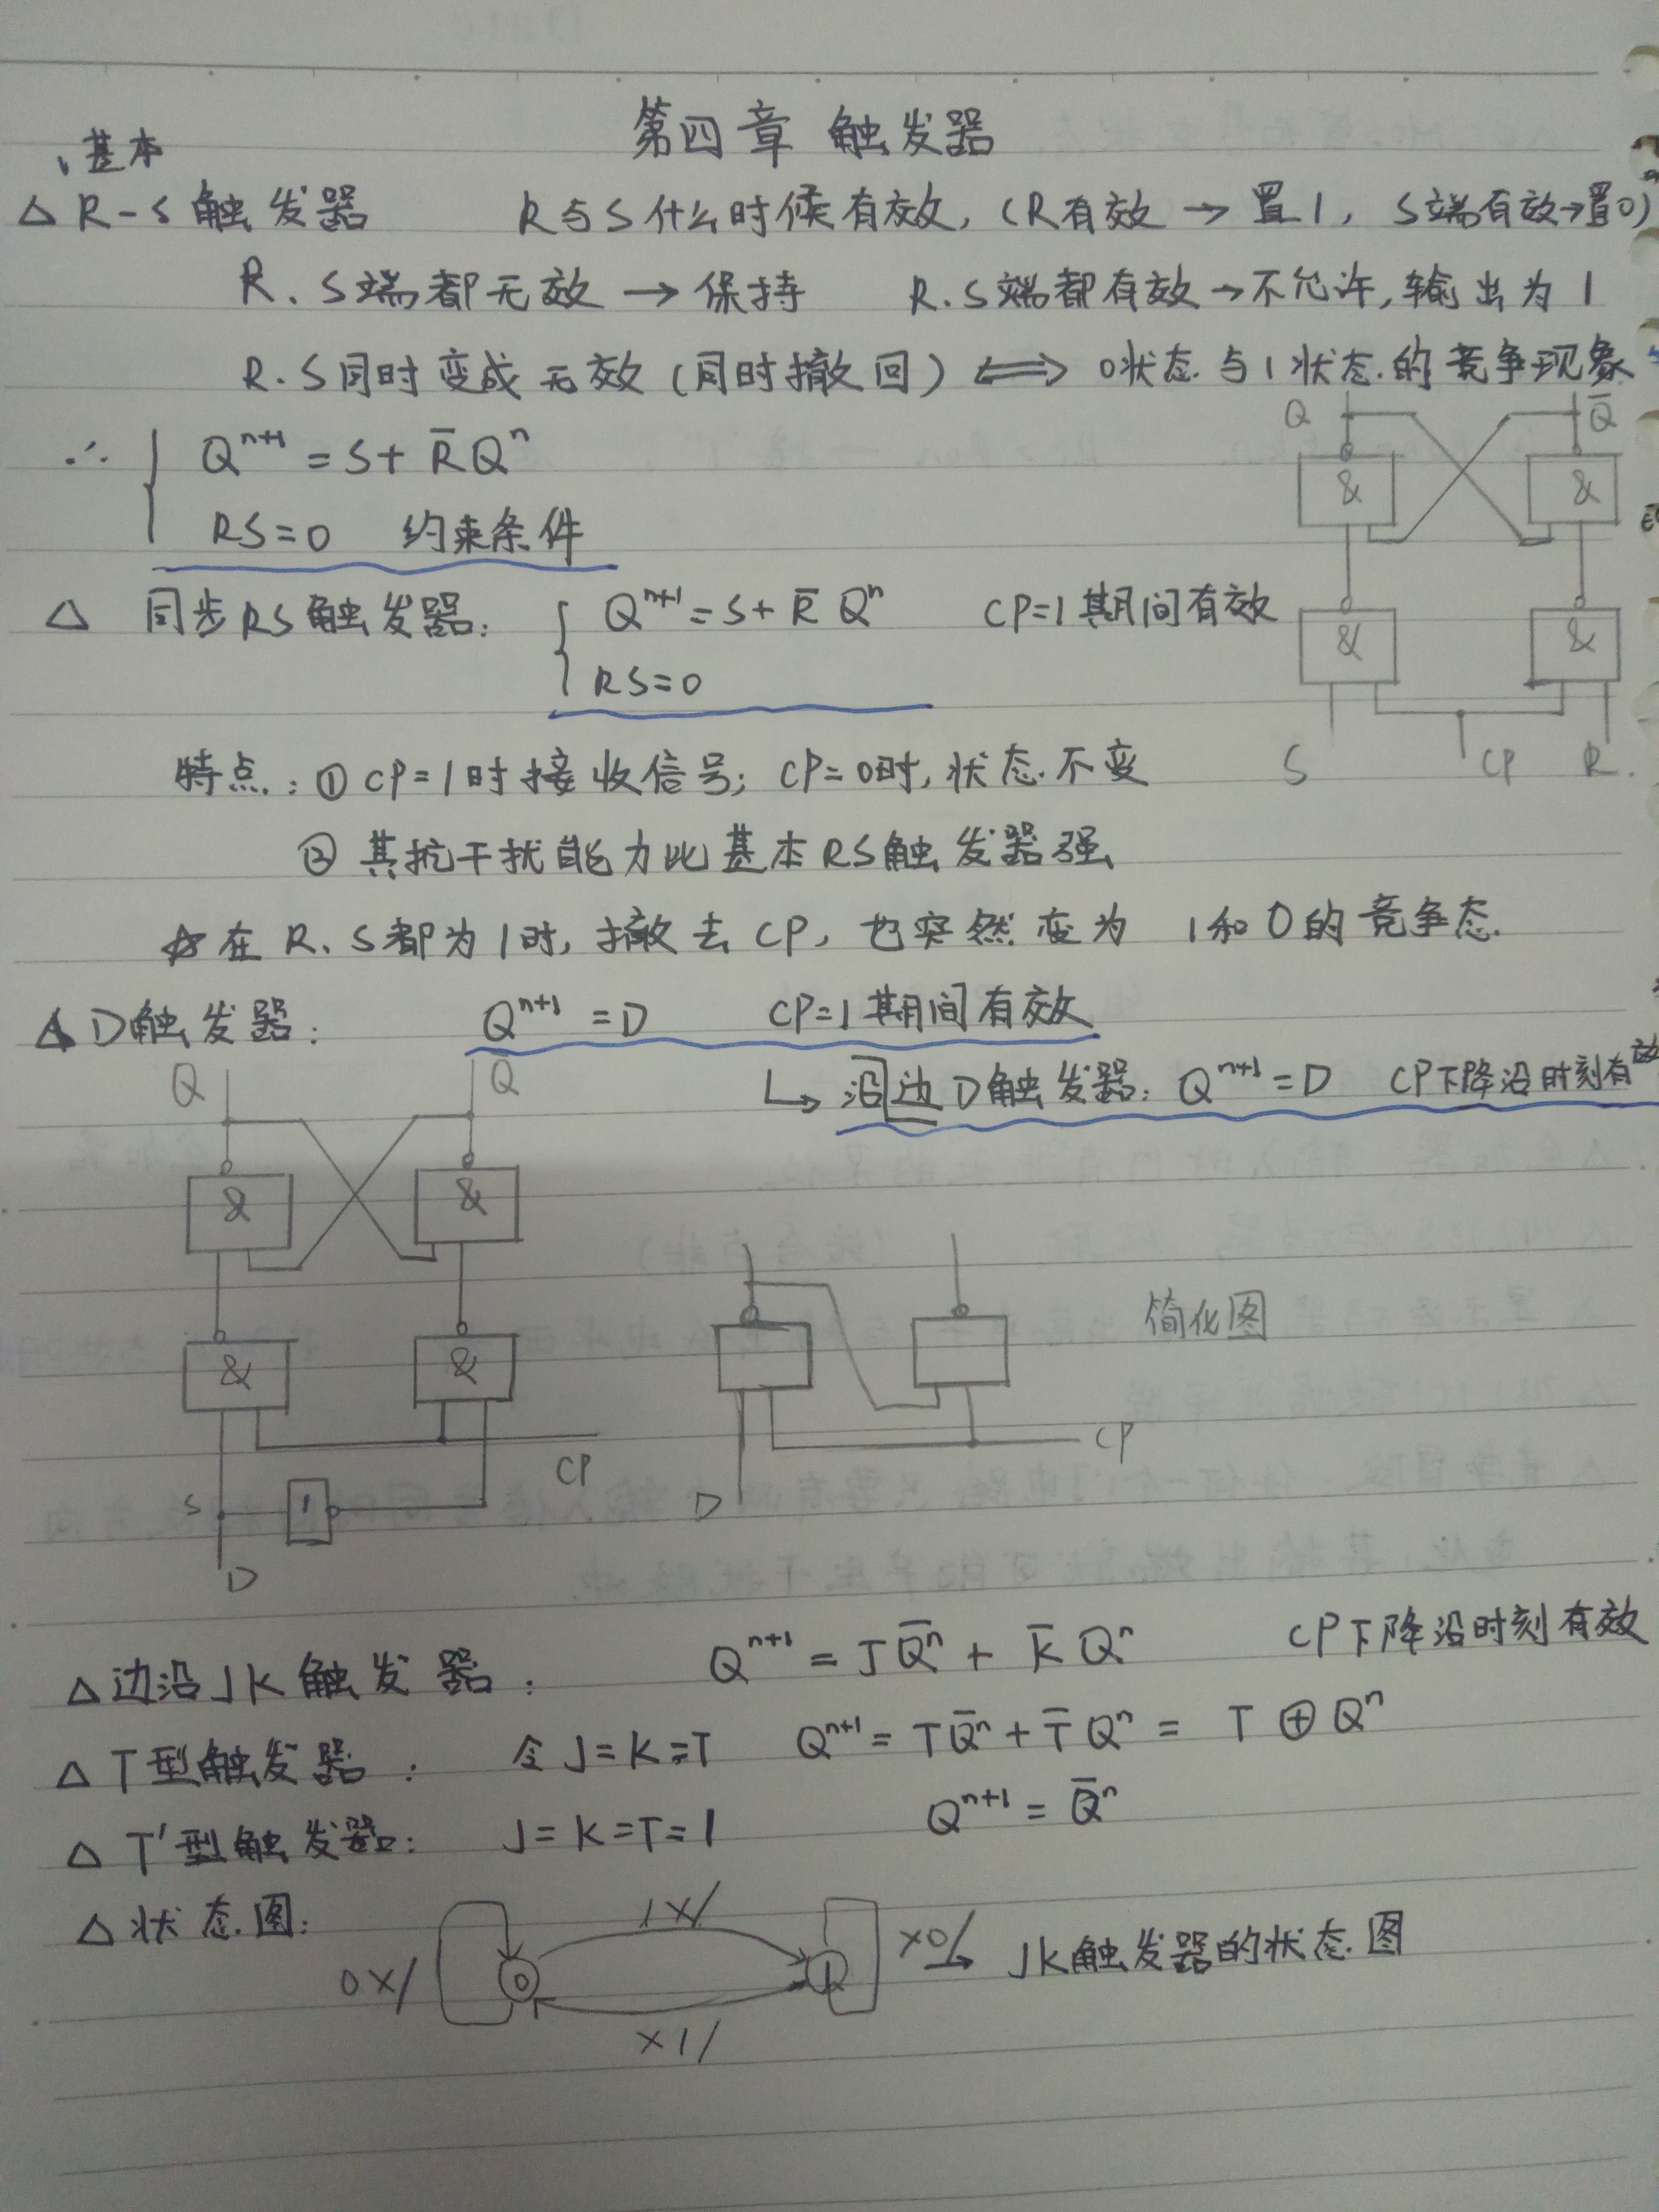 第四章 触发器
基本
△ R-S 触发器 R与S什么时候有效,(R有效→置1, S端有效→置0)
R.S端都无效→保持 R.S端都有效→不允许,输出为1
R.S同时变成无效(同时撤回)⟺0状态与1状态的竞争现象
∴ { Q^{n+1} = S + R̅Q^n
RS=0 约束条件
Q Q̅
& &
& &
S CP R.
△ 同步RS触发器: { Q^{n+1} = S + R̅Q^n CP=1期间有效
RS=0
特点:① CP=1时接收信号; CP=0时,状态不变
② 其抗干扰能力比基本RS触发器强
☆在 R.S都为1时,撤去CP,也突然变为 1和0的竞争态.
△ D触发器: Q^{n+1} = D CP=1期间有效
↳ 沿边D触发器: Q^{n+1} = D CP下降沿时刻有效
Q Q̅
& &
& &
CP
S 1
D
简化图
CP
D
△边沿JK触发器: Q^{n+1} = JQ̅^n + K̅Q^n CP下降沿时刻有效
△ T型触发器: 令J=K=T Q^{n+1} = TQ̅^n + T̅Q^n = T⊕Q^n
△ T'型触发器: J=K=T=1 Q^{n+1} = Q̅^n
△状态图: 0×/ 0 1×/ 1 ×0/ → JK触发器的状态图
×1/